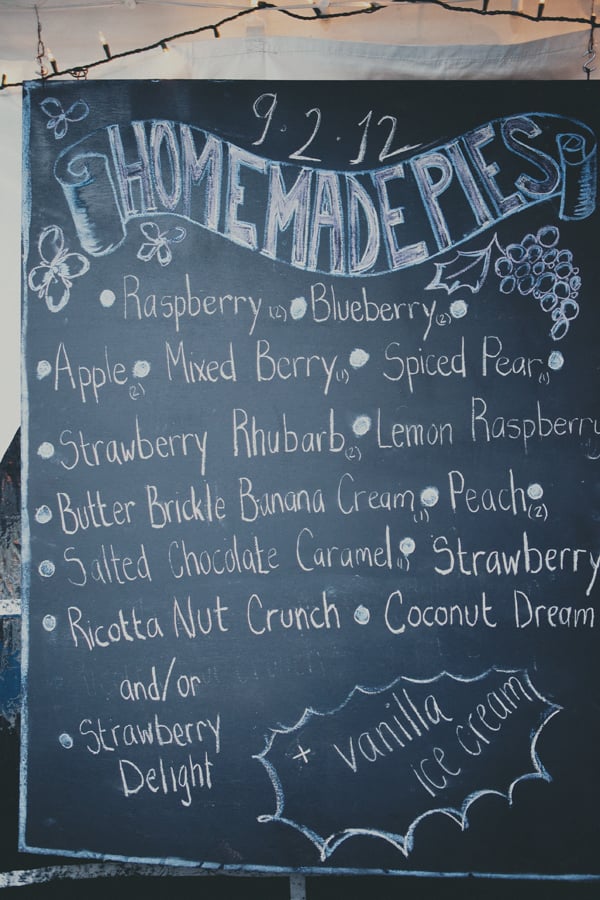 9.2.12
HOMEMADE PIES
• Raspberry (2) • Blueberry (2) •
• Apple (2) • Mixed Berry (1) • Spiced Pear (1) •
• Strawberry Rhubarb (2) • Lemon Raspberry
• Butter Brickle Banana Cream (1) • Peach (2) •
• Salted Chocolate Caramel (1) • Strawberry
• Ricotta Nut Crunch • Coconut Dream
and/or
• Strawberry
Delight
+ vanilla
ice cream